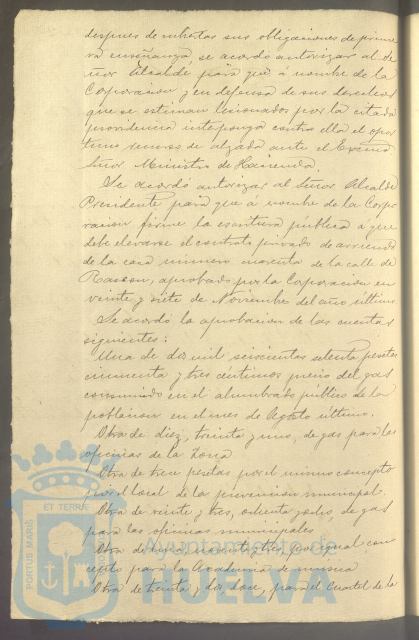 despues de cubiertas sus obligaciones de prime
ra enseñanza, se acordó autorizar al Se
ñor Alcalde para que á nombre de la
Corporacion y en defensa de sus derechos
que se estiman lesionados por la citada
providencia interponga contra ella el opor
tuno recurso de alzada ante el Excmo
Señor Ministro de Hacienda.
Se acordó autorizar al Señor Alcalde
Presidente para que á nombre de la Corpo
racion firme la escritura pública á que
debe elevarse el contrato privado de arriendo
de la casa número noventa de la calle de
Rascon, aprobado por la Corporacion en
veinte y siete de Noviembre del año último.
Se acordó la aprobacion de las cuentas
siguientes:
Una de dos mil seiscientas setenta pesetas
cincuenta y tres céntimos precio del gas
consumido en el alumbrado público de la
poblacion en el mes de Agosto último.
Otra de diez, treinta y uno, de gas para las
oficinas de la Zona
Otra de trece pesetas por el mismo concepto
por el local de la prevencion municipal.
Otra de veinte y tres, ochenta y seis de gas
para las oficinas municipales
Otra de noventa y tres, por igual con
cepto para la Academia de musica
Otra de treinta, doce, para el Cuartel de la
ET TERRÆ
PORTUS MARIS
CUSTODIA
Ayuntamiento de
HUELVA